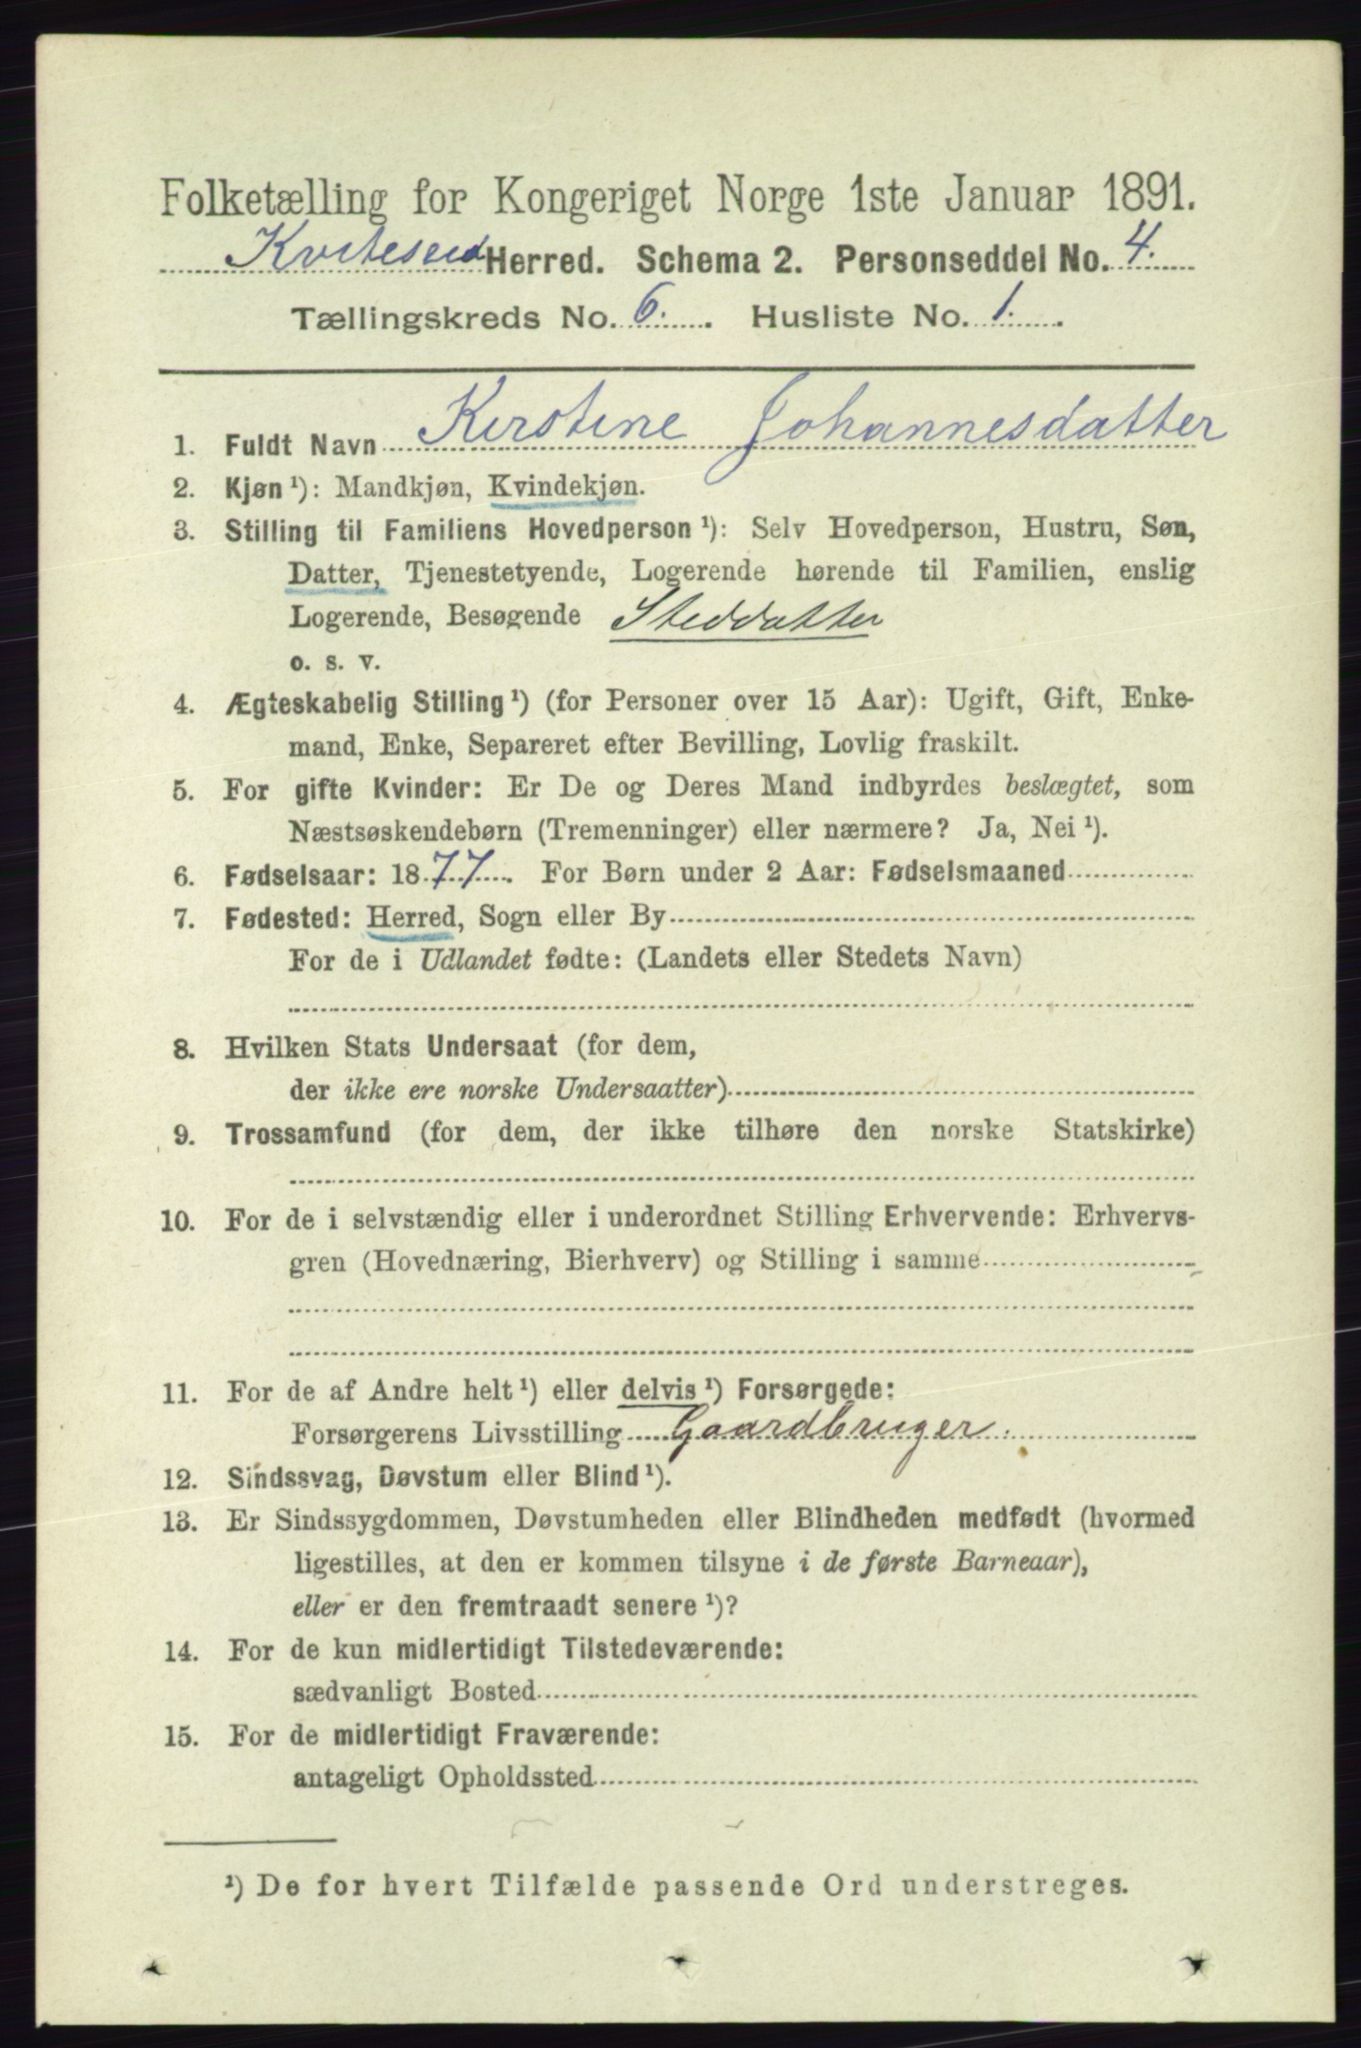 Folketælling for Kongeriget Norge 1ste Januar 1891.
Kviteseid Herred. Schema 2. Personseddel No. 4.
Tællingskreds No. 6. Husliste No. 1.
1. Fuldt Navn Kirstine Johannesdatter
2. Kjøn ¹): Mandkjøn, Kvindekjøn.
3. Stilling til Familiens Hovedperson ¹): Selv Hovedperson, Hustru, Søn,
Datter, Tjenestetyende, Logerende hørende til Familien, enslig
Logerende, Besøgende Steddatter
o. s. v.
4. Ægteskabelig Stilling ¹) (for Personer over 15 Aar): Ugift, Gift, Enke-
mand, Enke, Separeret efter Bevilling, Lovlig fraskilt.
5. For gifte Kvinder: Er De og Deres Mand indbyrdes beslægtet, som
Næstsøskendebørn (Tremenninger) eller nærmere? Ja, Nei ¹).
6. Fødselsaar: 1877. For Børn under 2 Aar: Fødselsmaaned
7. Fødested: Herred, Sogn eller By
For de i Udlandet fødte: (Landets eller Stedets Navn)
8. Hvilken Stats Undersaat (for dem,
der ikke ere norske Undersaatter)
9. Trossamfund (for dem, der ikke tilhøre den norske Statskirke)
10. For de i selvstændig eller i underordnet Stilling Erhvervende: Erhvervs-
gren (Hovednæring, Bierhverv) og Stilling i samme
11. For de af Andre helt ¹) eller delvis ¹) Forsørgede:
Forsørgerens Livsstilling Gaardbruger.
12. Sindssvag, Døvstum eller Blind ¹).
13. Er Sindssygdommen, Døvstumheden eller Blindheden medfødt (hvormed
ligestilles, at den er kommen tilsyne i de første Barneaar),
eller er den fremtraadt senere ¹)?
14. For de kun midlertidigt Tilstedeværende:
sædvanligt Bosted
15. For de midlertidigt Fraværende:
antageligt Opholdssted
¹) De for hvert Tilfælde passende Ord understreges.